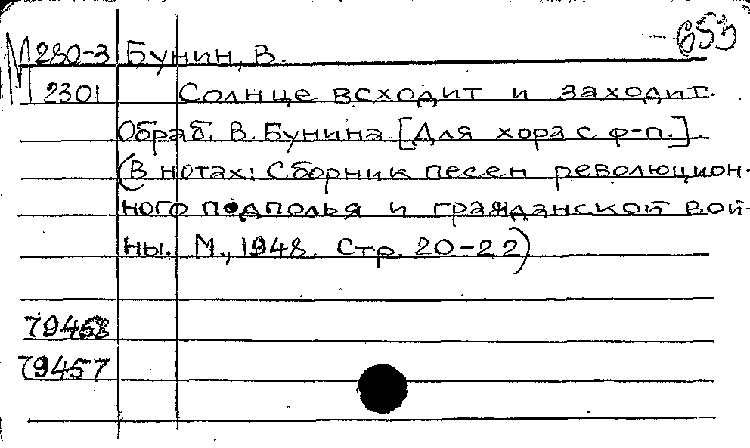 -653
М 280-3 Бунин, В.
2301 Солнце всходит и заходит.
Обраб. В. Бунина [Для хора с ф-п.]
(В нотах: Сборник песен революцион-
ного подполья и гражданской вой-
ны. М., 1948. Стр. 20-22)
79458
79457